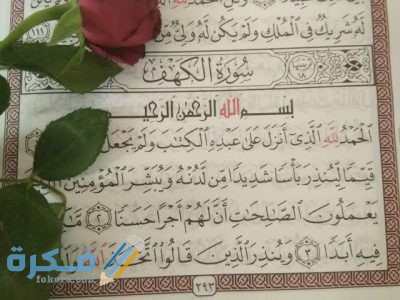 لَّهُۥ شَرِيكٌ فِى ٱلْمُلْكِ وَلَمْ يَكُن لَّهُۥ وَلِىٌّ مِّنَ
سُورَةُ الكَهْفِ
١٨
بِسْمِ ٱللَّهِ ٱلرَّحْمَٰنِ ٱلرَّحِيمِ
ٱلْحَمْدُ لِلَّهِ ٱلَّذِىٓ أَنزَلَ عَلَىٰ عَبْدِهِ ٱلْكِتَٰبَ وَلَمْ يَجْعَل
قَيِّمًا لِّيُنذِرَ بَأْسًا شَدِيدًا مِّن لَّدُنْهُ وَيُبَشِّرَ ٱلْمُؤْمِنِينَ
يَعْمَلُونَ ٱلصَّٰلِحَٰتِ أَنَّ لَهُمْ أَجْرًا حَسَنًا ٢
فِيهِ أَبَدًا ٣ وَيُنذِرَ ٱلَّذِينَ قَالُوا۟
٢٩٣
فكرة